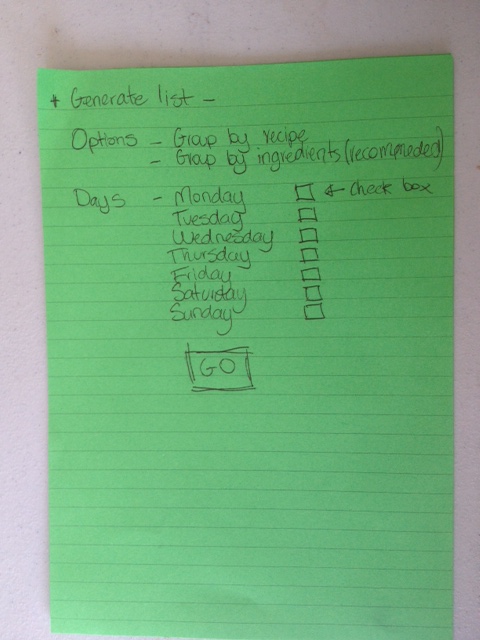 + Generate list -
Options - Group by recipe
- Group by ingredients (recomeneded)
Days - Monday ← check box
Tuesday
Wednesday
Thursday
Friday
Saturday
Sunday
GO